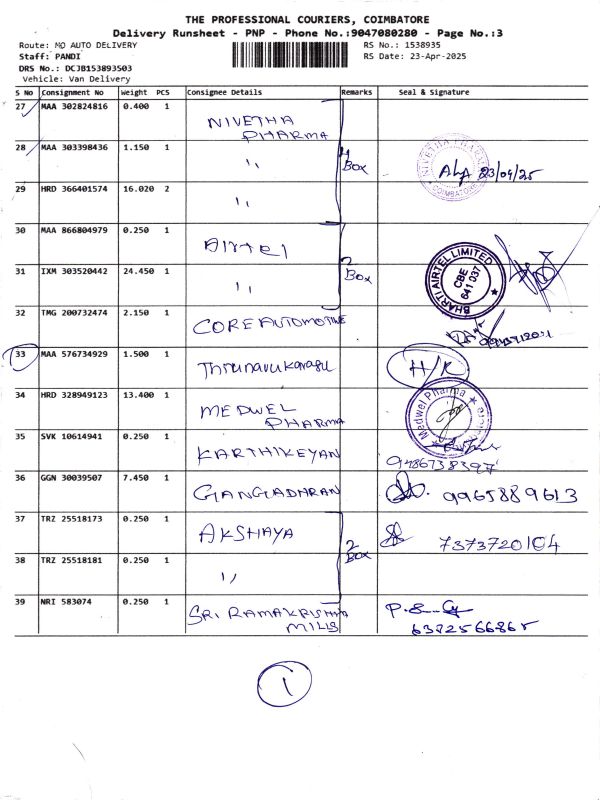 THE PROFESSIONAL COURIERS, COIMBATORE
Delivery Runsheet - PNP - Phone No.:9047080280 - Page No.:3
Route: MO AUTO DELIVERY
RS No.: 1538935
Staff: PANDI
RS Date: 23-Apr-2025
DRS No.: DCJB153893503
Vehicle: Van Delivery
S No Consignment No Weight PCS Consignee Details Remarks Seal & Signature
27 MAA 302824816 0.400 1 NIVETHA PHARMA
28 MAA 303398436 1.150 1 ,, 4 Box NIVETHA PHARMA COIMBATORE 23/04/25
29 HRD 366401574 16.020 2 ,,
30 MAA 866804979 0.250 1 Airtel
31 IXM 303520442 24.450 1 ,, 2 Box BHARTI AIRTEL LIMITED CBE 641 037
32 TMG 200732474 2.150 1 CORE AUTOMOTIVE
33 MAA 576734929 1.500 1 Thirunavukarasu H/R
34 HRD 328949123 13.400 1 MEDWEL PHARMA Medwel Pharma
35 SVK 10614941 0.250 1 KARTHIKEYAN 9486738397
36 GGN 30039507 7.450 1 GANGADHARAN 9965889613
37 TRZ 25518173 0.250 1 AKSHAYA 2 Box 7373720104
38 TRZ 25518181 0.250 1 ,,
39 NRI 583074 0.250 1 SRI RAMAKRISHNA MILLS
1